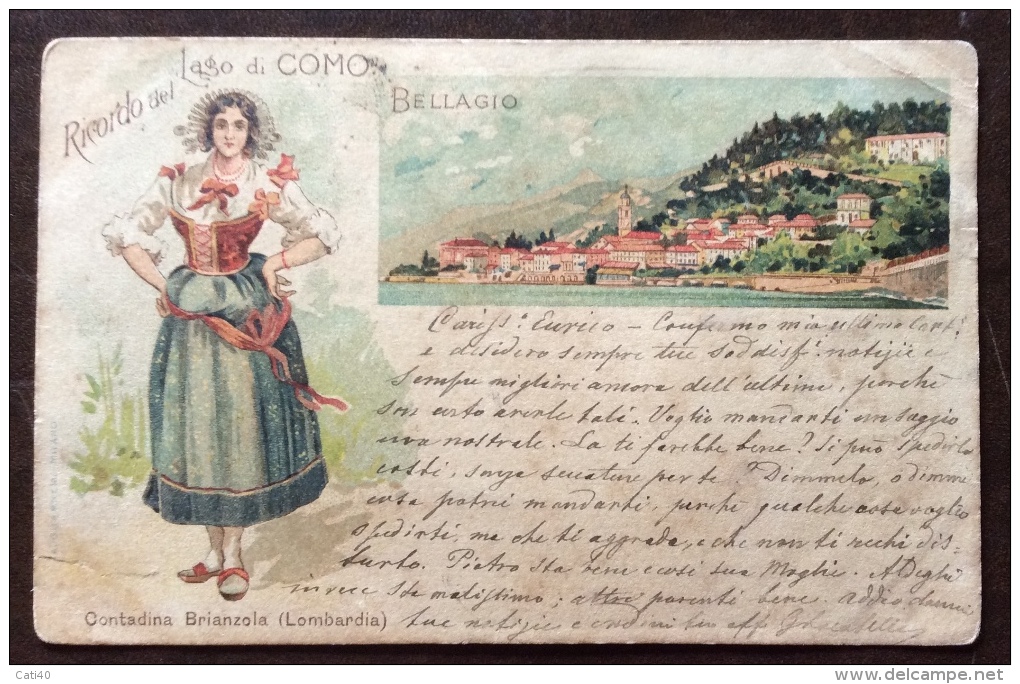 Ricordo del Lago di COMO
BELLAGIO
Cariss.º Enrico – Confermo mia ultima Cart.
e desidero sempre tue soddisf. notizie e
sempre migliori ancora dell'ultime, perchè
son certo averle tali. Voglio mandarti un saggio
uva nostrale. La ti farebbe bene? Si può spedirlo
costì, senza seccature per te? Dimmelo, o dimmi
cosa potrei mandarti, perchè qualche cosa voglio
spedirti, ma che ti aggrada, e che non ti rechi dis-
turbo. Pietro sta bene e così sua Moglie.
invece sta malissimo; altre parenti bene. addio dammi
tue notizie e credimi tuo aff.
Contadina Brianzola (Lombardia)
Cati40
delcampe.net